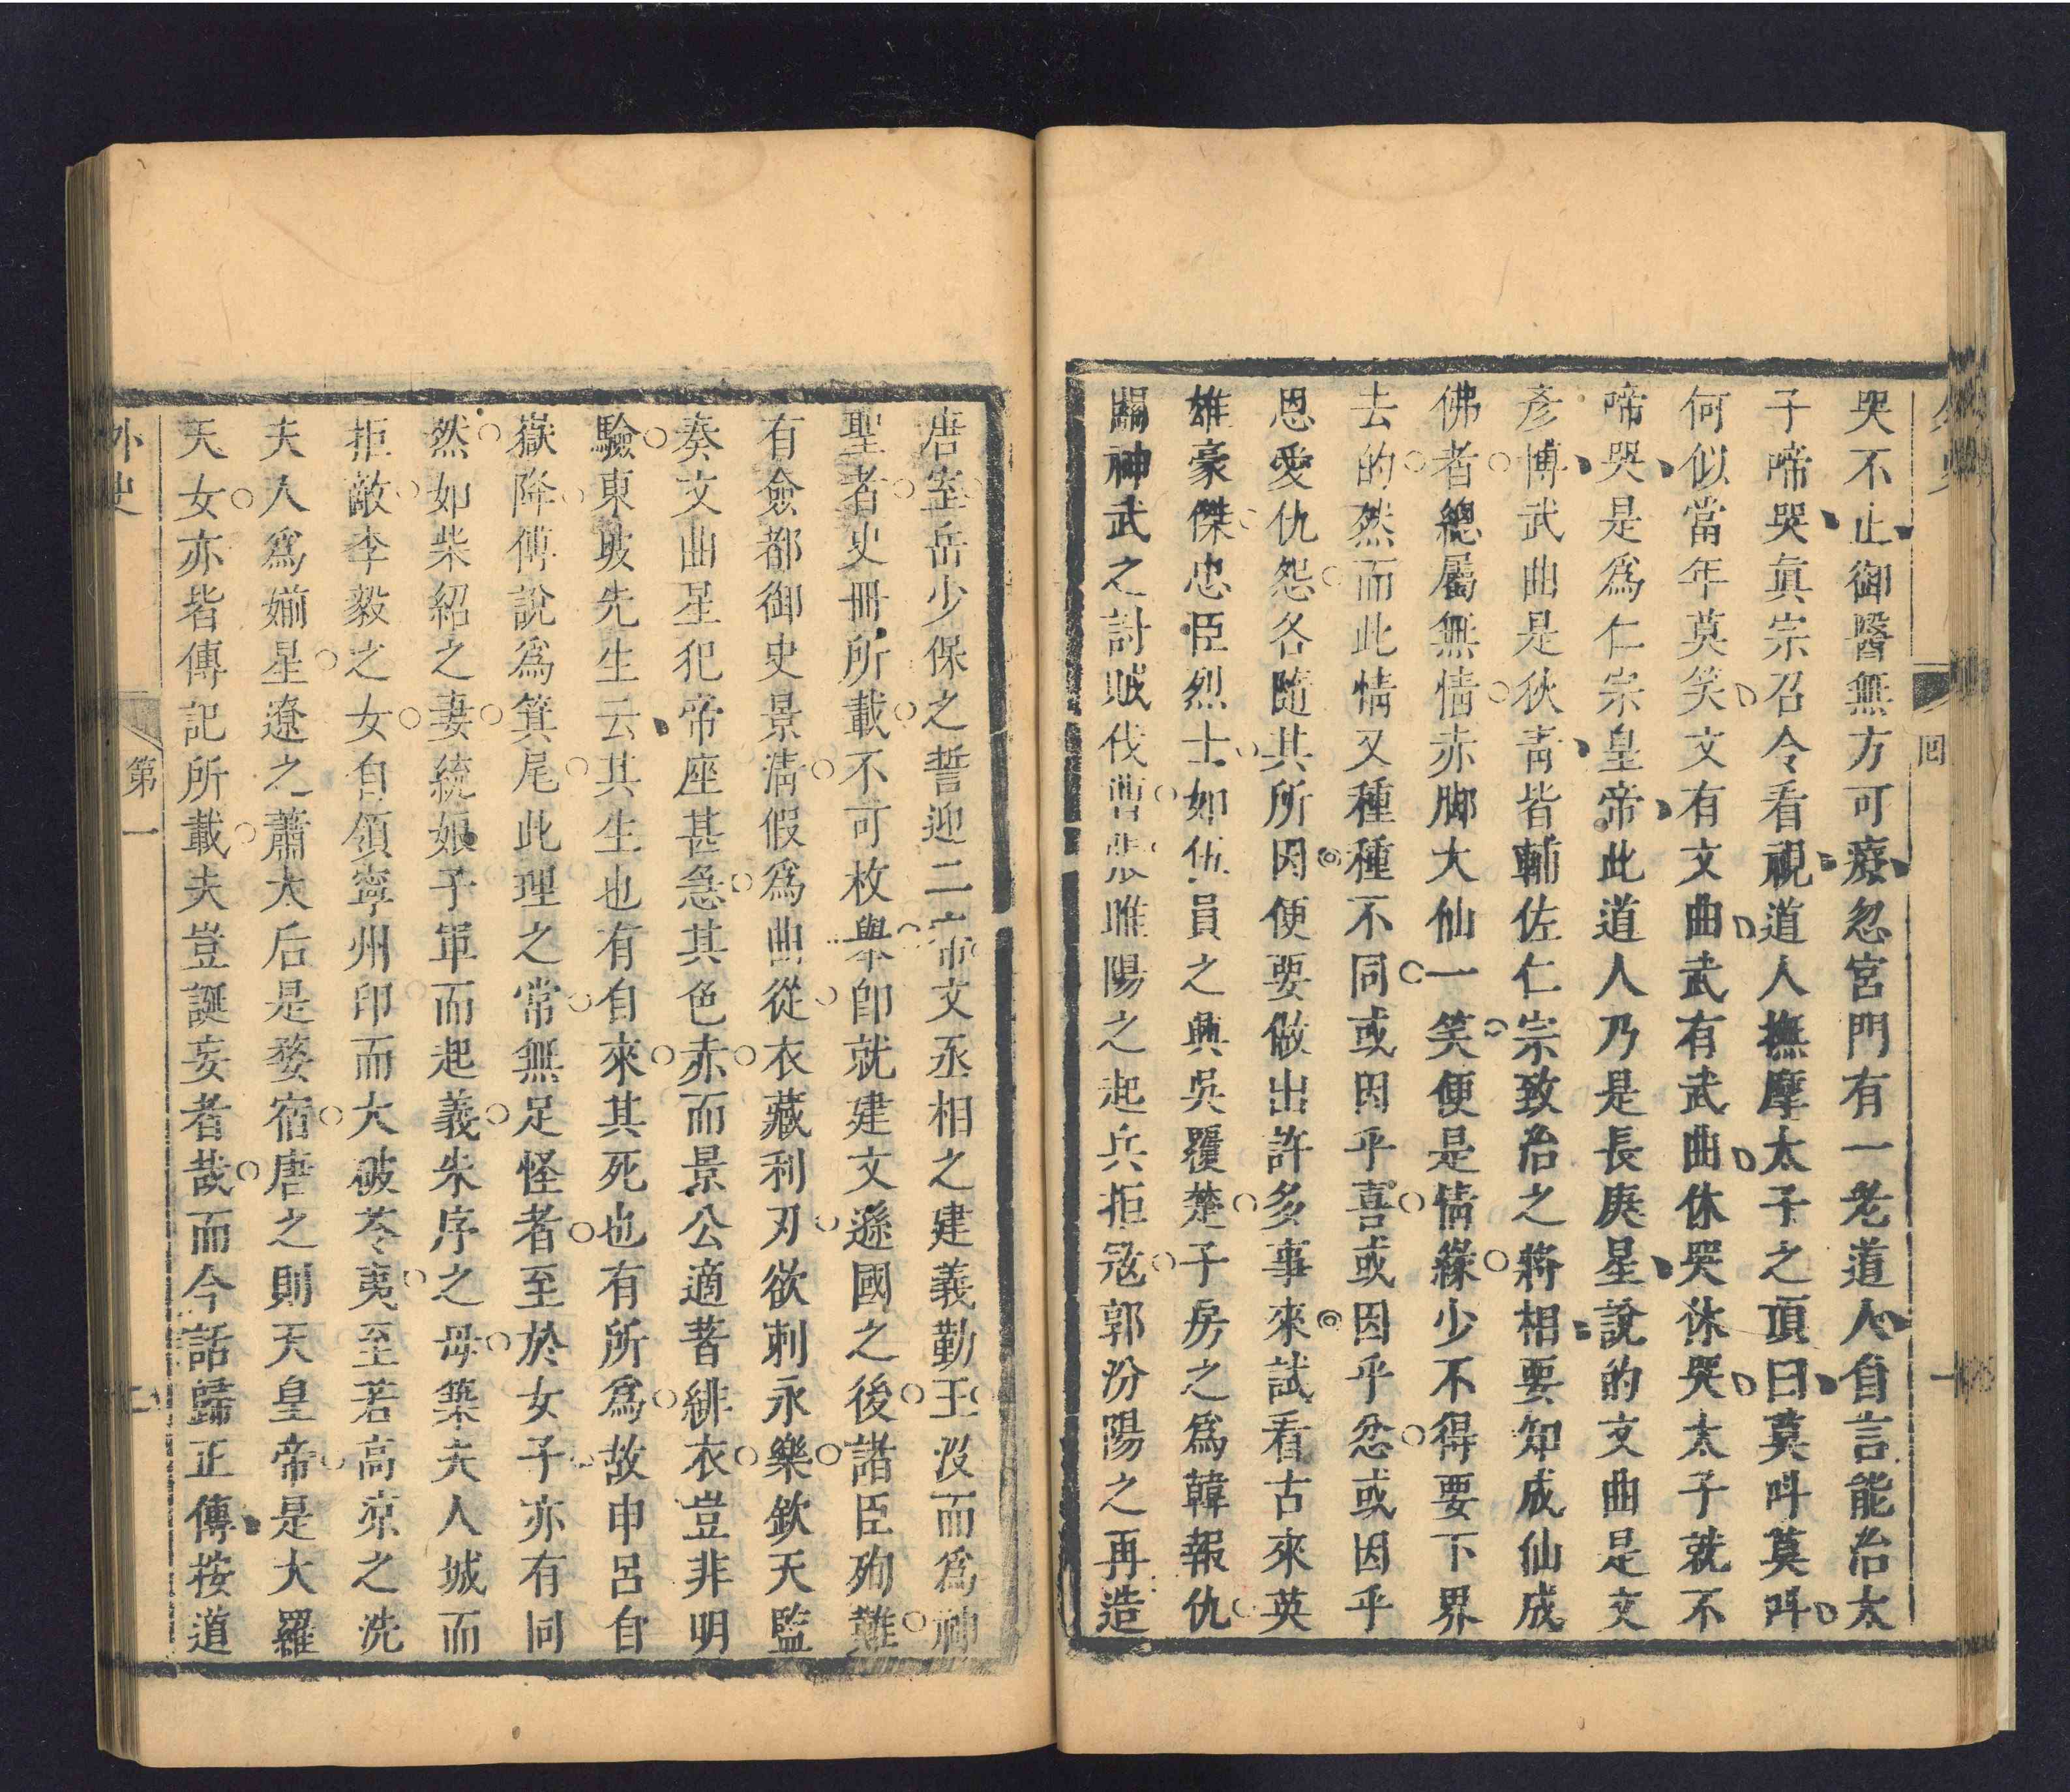 哭不止御醫無方可療忽宮門有一老道人自言能治太
子啼哭眞宗召令看視道人撫摩太子之頂曰莫呌莫呌
何似當年莫笑文有文曲武有武曲休哭休哭太子就不
啼哭是爲仁宗皇帝此道人乃是長庚星說的文曲是文
彥博武曲是狄青皆輔佐仁宗致治之將相要知成仙成
佛者總屬無情赤脚大仙一笑便是情緣少不得要下界
去的然而此情又種種不同或因乎喜或因乎忿或因乎
恩愛仇怨各隨其所因便要做出許多事來試看古來英
雄豪傑忠臣烈士如伍員之興吳覆楚子房之爲韓報仇
關神武之討賊伐曹張睢陽之起兵拒寇郭汾陽之再造
唐室岳少保之誓迎二帝文丞相之建義勤王沒而爲神
聖者史冊所載不可枚舉卽就建文遜國之後諸臣殉難
有僉都御史景淸假爲曲從衣藏利刃欲刺永樂欽天監
奏文曲星犯帝座甚急其色赤而景公適著緋衣豈非明
驗東坡先生云其生也有自來其死也有所爲故申呂自
嶽降傅說爲箕尾此理之常無足怪者至於女子亦有同
然如柴紹之妻統娘子軍而起義朱序之母築夫人城而
拒敵李毅之女自領寧州印而大破苓夷至若高凉之洗
夫人爲嫦星遼之蕭太后是婺宿唐之則天皇帝是大羅
天女亦皆傳記所載夫豈誕妄者哉而今話歸正傳按道
外史
第一
二